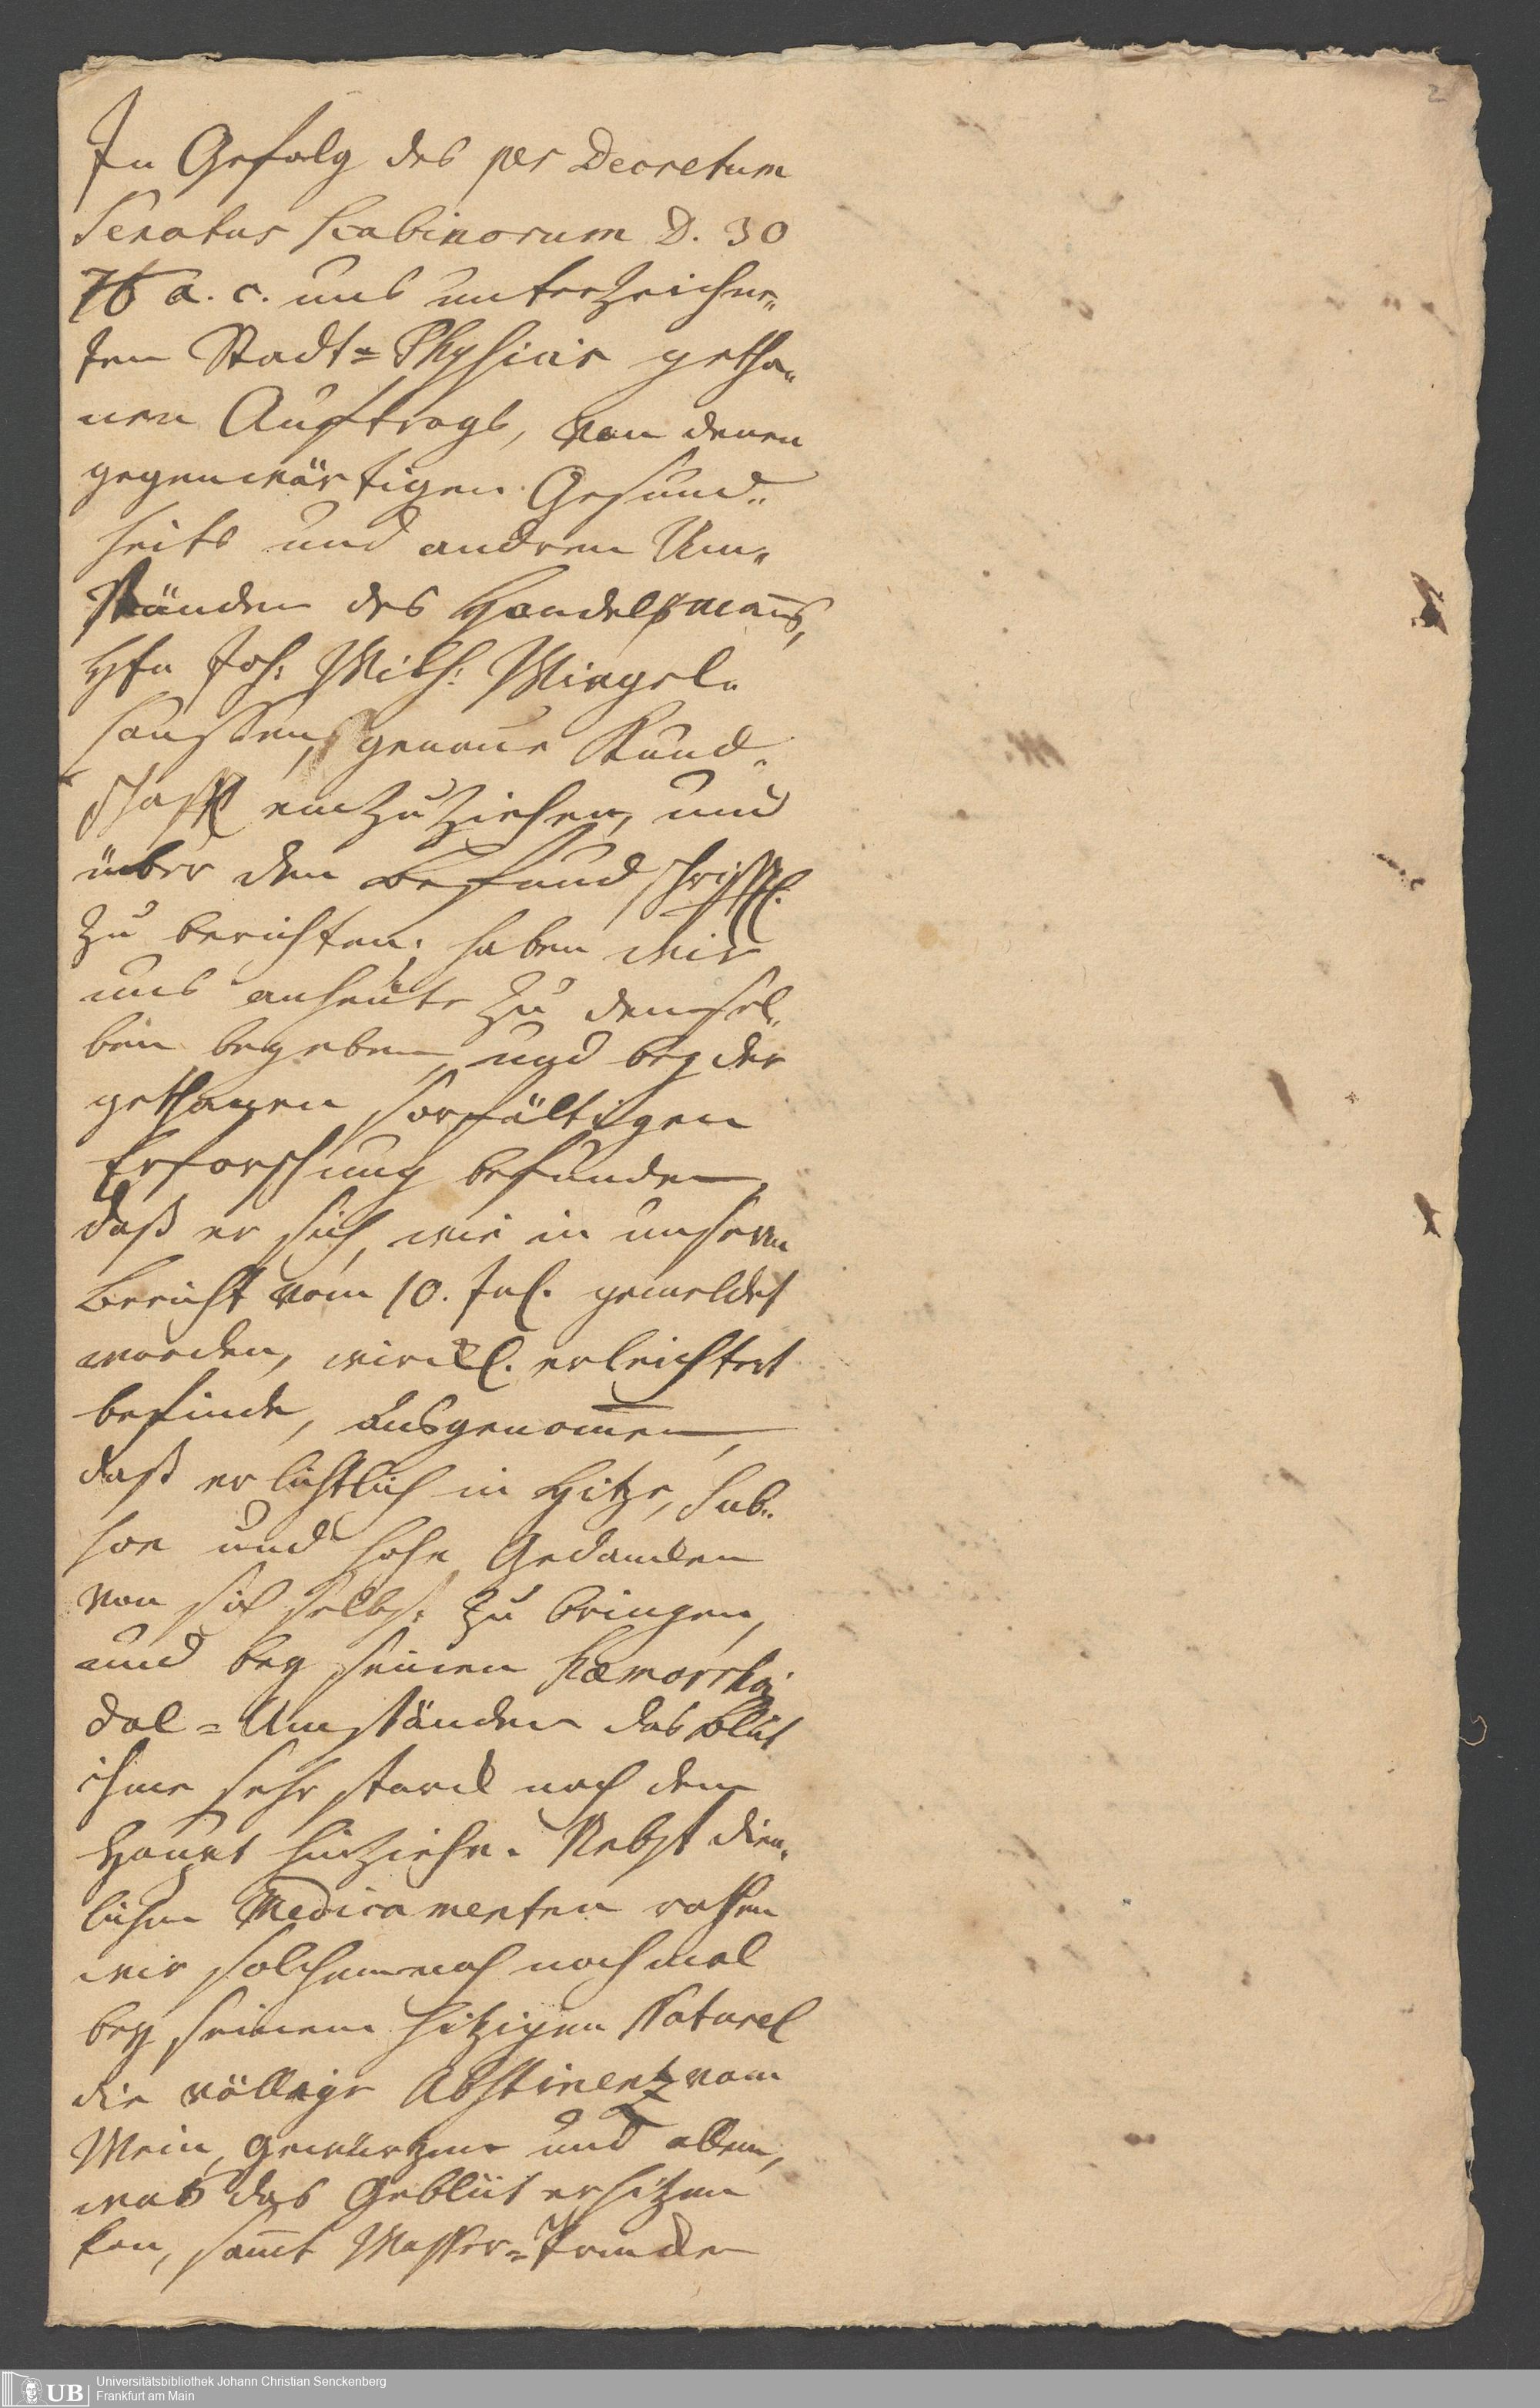 2
In Gefolg des per Decretum
Senatus Scabinorum D. 30
7b a. c. uns unterzeichne„
ten Stadt=Physicis getha„
nen Auftrags, von denen
gegenwärtigen Gesund„
heits und andren Um„
ständen des Handelsmanns,
Hrn Joh: Wilh: Wingel„
haussen, genaue Kund„
schafft einzuziehen, und
über den Befund schrifftl.
zu berichten; haben wir
uns anheute zu demsel„
ben begeben und bey der
gethanen sorfältigen
Erforschung befunden,
daß er sich, wie in unserm
Bericht vom 10. Jul. gemeldet
worden, wirckl. erleichtert
befinde, ausgenommen,
daß er lichtlich in Hitze,
und hohe Gedancken
von sich selbst zu bringen,
und bey seinen Hæmorrhoi
dal=Umständen das Blut
ihme sehr starck nach dem
Haupt hinziehe. Nebst dien„
lichen Medicamenten rathen
wir solchemnach nochmal
bey seinem hitzigen Naturel
die völlige Abstinentz vom
Wein, Gewürtzen und allem,
was das Geblüt erhitzen
kan, samt Wasser=Trincken
UB
Universitätsbibliothek Johann Christian Senckenberg
Frankfurt am Main